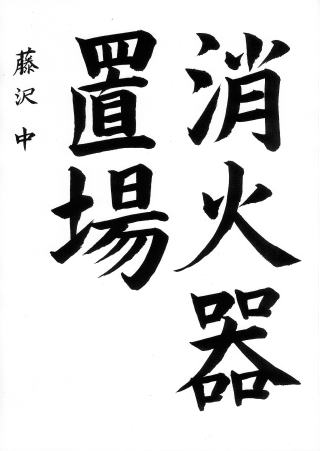 消火器
置場
藤沢 中